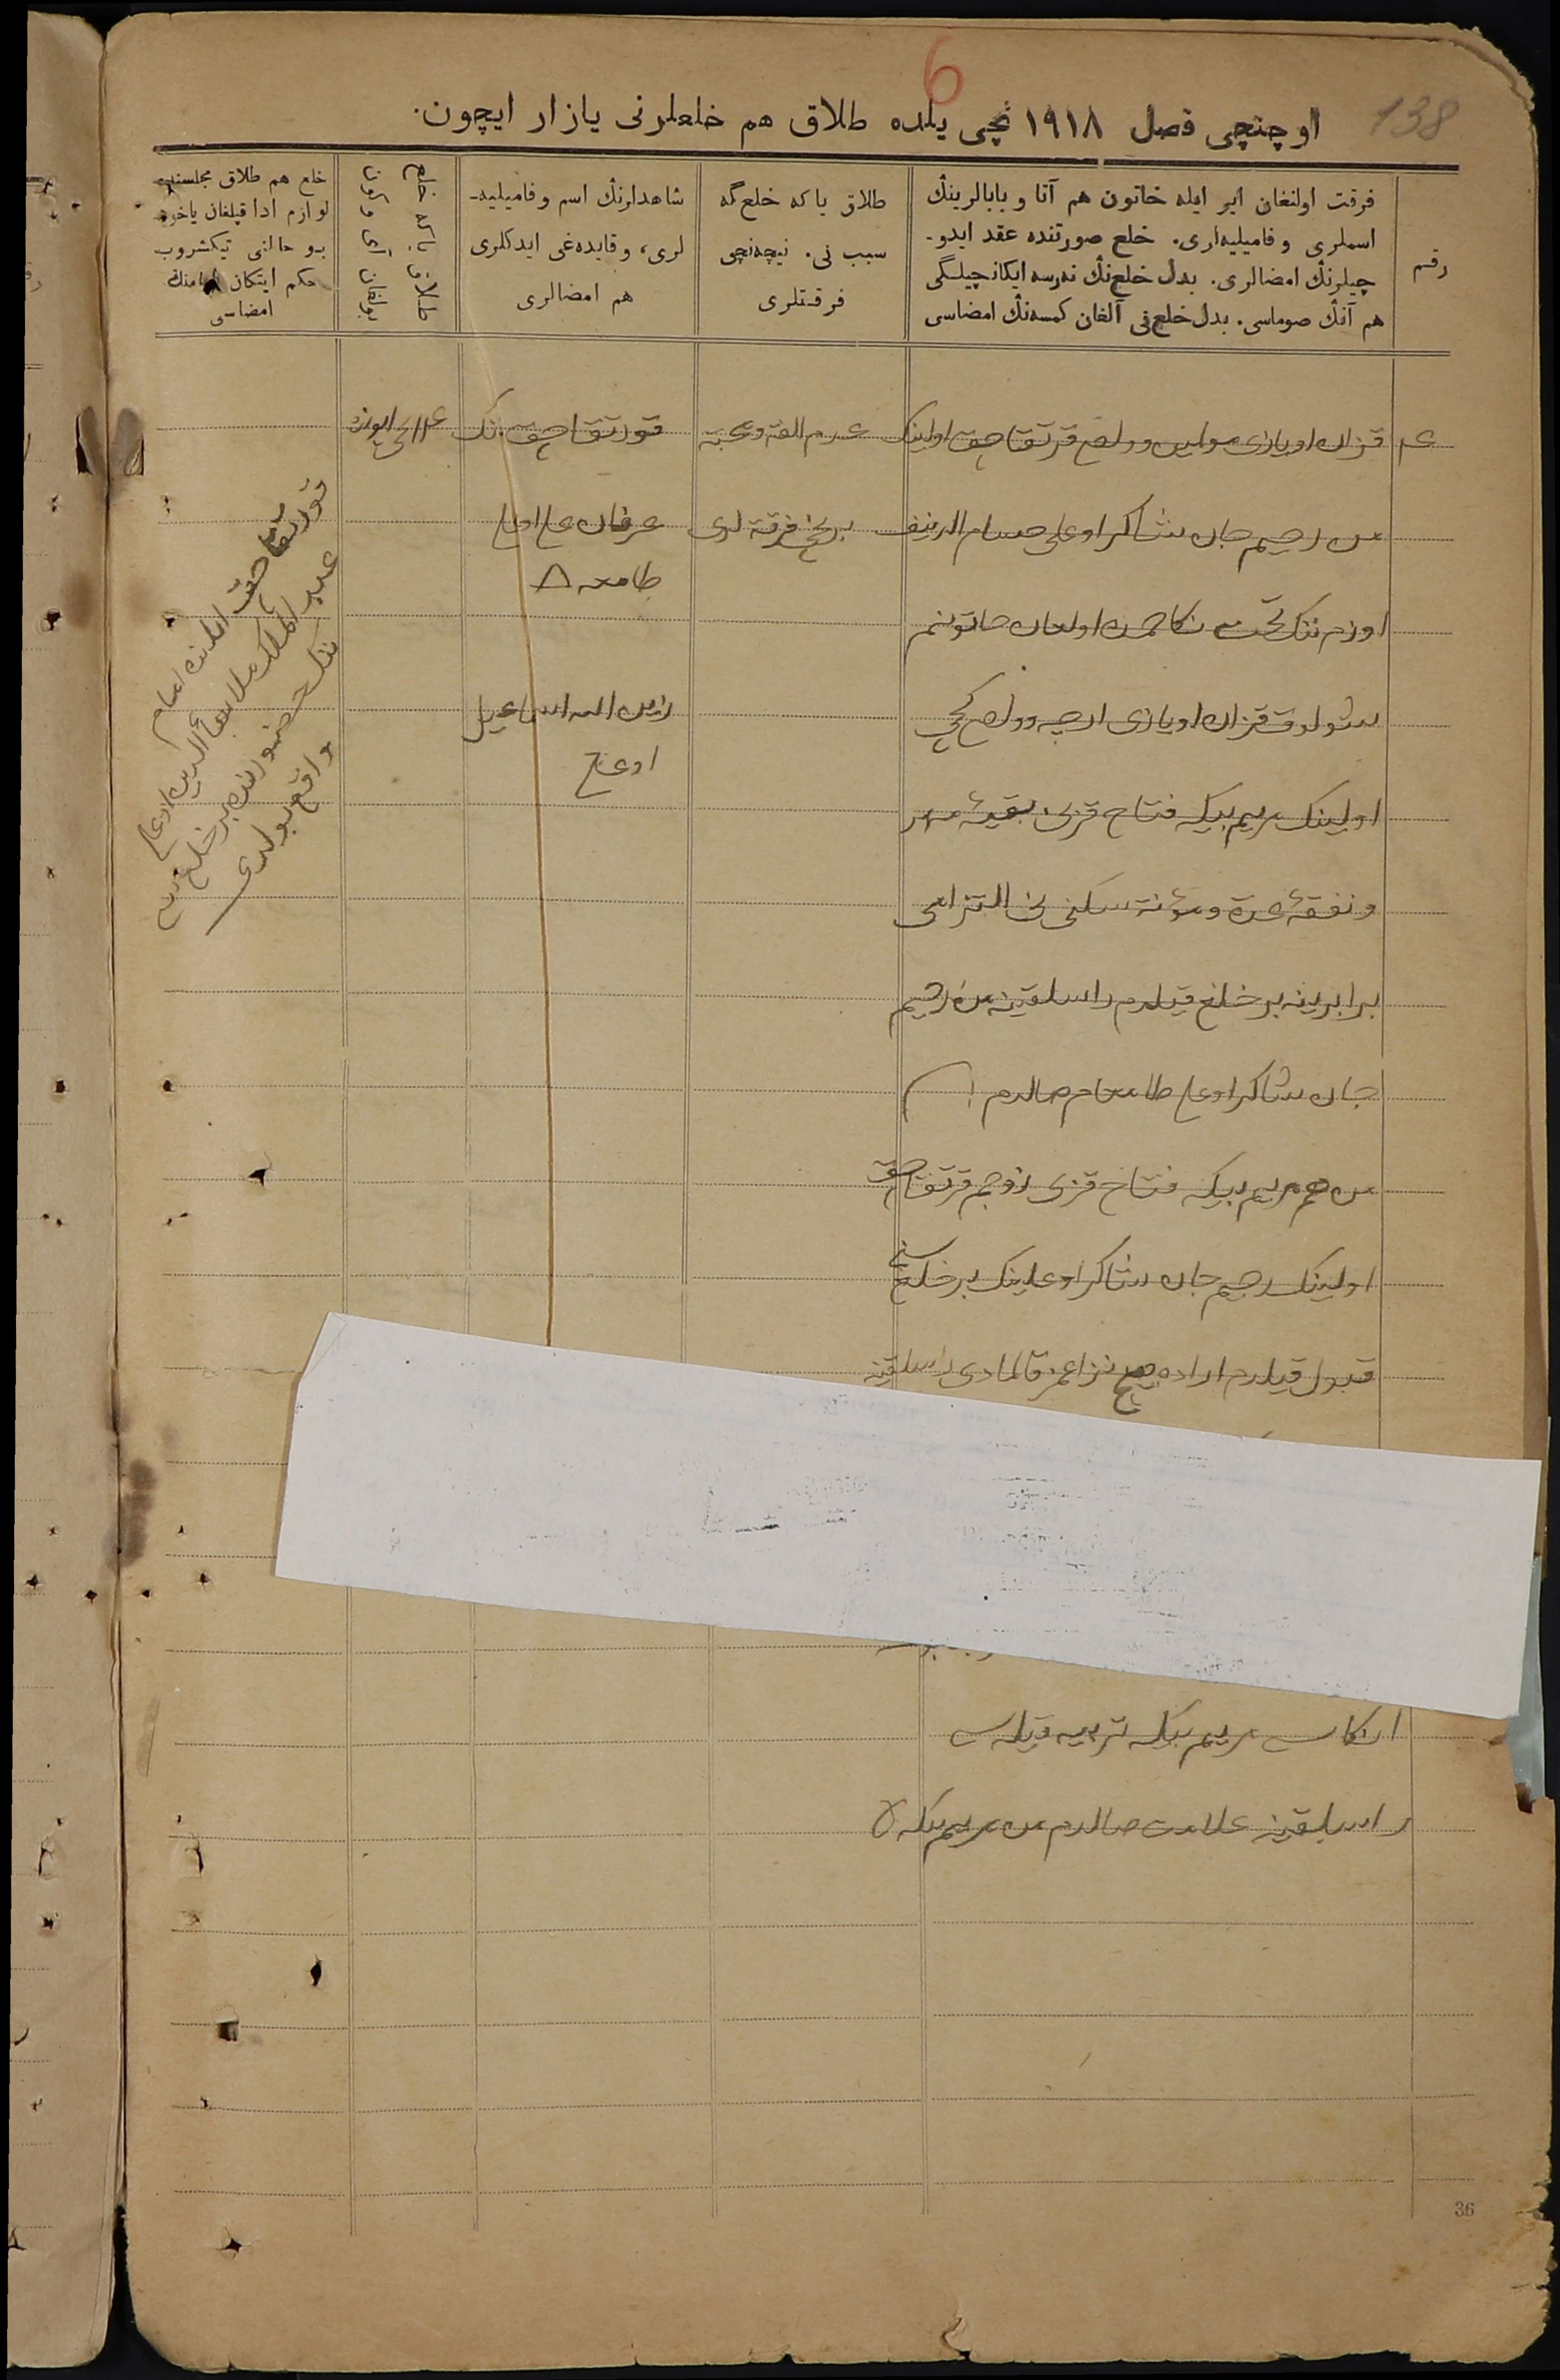 6
138
اوچنچی فصل ۱۹۱۸ نچی یلده طلاق هم خلعلرنی یازار ایچون.
رقم
فرقت اولنغان ایر ایله خاتون هم آتا و بابالرینڭ
اسملری و فامیلیه‌لری. خلع صورتنده عقد ایدو-
چیلرنڭ امضالری. بدل خلع‌نڭ نەرسه ایکانچیلگی
هم آنڭ صوماسی. بدل خلع‌نی آلغان کمسه‌نڭ امضاسی
طلاق یا که خلع گه
سبب نی. نیچه‌نچی
فرقتلری
شاهدلرنڭ اسم و فامیلیه-
لری، و قایده‌غی ایدکلری
هم امضالری
خلع یا که طلاق
بولغان آی و کون
خلع هم طلاق مجلسنده
لوازم ادا قیلغان یاخود
بو حالنی تیکشروب
حکم ایتکان امامنڭ
امضاسی
قزان اویازی وولص قورتقاچق اولینک
من رحیم جان شاکر اوغلی حسام الدینف
اوزم ننک تحت نکاحمده اولغان خاتونم
شولوق قزان اویازی وولص
اولینک مریم بیکه فتاح قزی بقیهٔ مهر
و نفقهٔ عدة و مؤنة سکنی نی التزامی
برابرینه بر خلع قیلدم راسلقینه من رحیم
جان شاکر اوغلی طامغام صالدم
من هم مریم بیکه فتاح قزی زوجم قورتقاچق
اولینک رحیم جان شاکر اوغلینک بر خلعنی
قبول قیلدم اراده هیچ نزاعمز قالمادی راسلقینه
مریم بیکه تربیه قیله
راسلقینه علامت صالدم من مریم بیکه
عدم الفة و محبة
برنچی فرقة لری
قورتقاچق ننک
عرفان اوغلی
طامغه ۸
زین الله اسماعیل
اوغلی
قورتقاچق اولینک امام
عبد الملک ملا بهاء الدین اوغلی
ننک حضورنده بر خلع
واقع بولدی
36